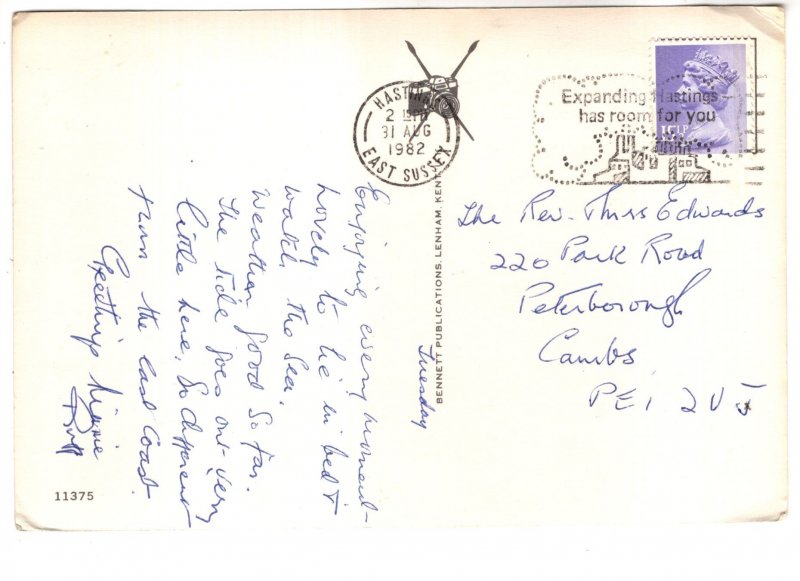 Tuesday
Enjoying every moment -
Lovely to lie in bed &
watch the sea.
Weather good so far.
The tide goes out very
little here. So different
from the east coast.
Greetings Winnie
The Rev. Edwards
220 Park Road
Peterborough
Cambs
PE1 2UJ
HASTINGS
2 15PM
31 AUG
1982
EAST SUSSEX
Expanding Hastings
has room for you
BENNETT PUBLICATIONS, LENHAM, KENT
11375